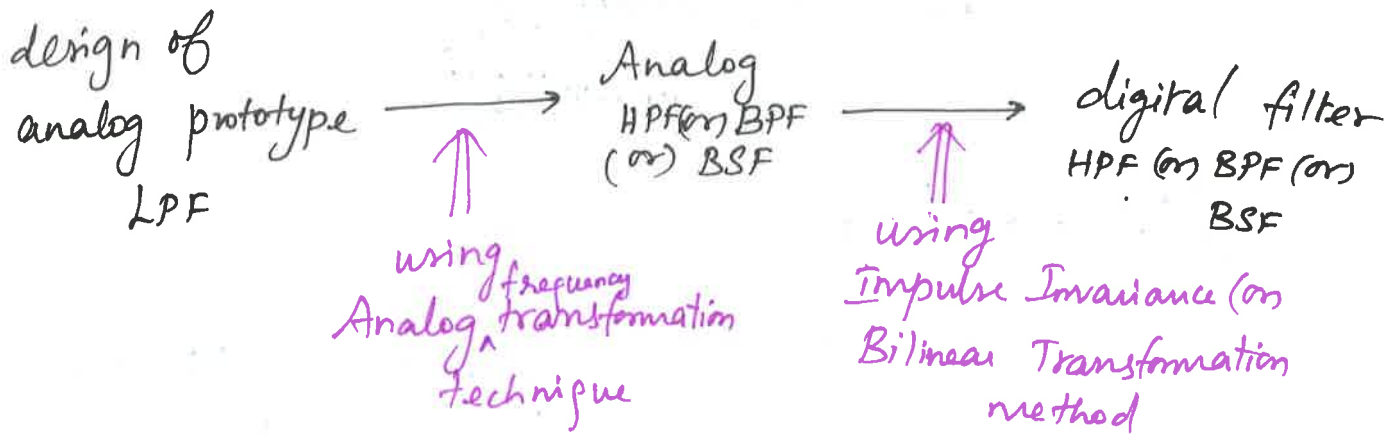 design of
analog prototype
LPF
Analog
HPF (or) BPF
(or) BSF
digital filter
HPF (or) BPF (or)
BSF
using
Analog frequency transformation
technique
using
Impulse Invariance (or)
Bilinear Transformation
method